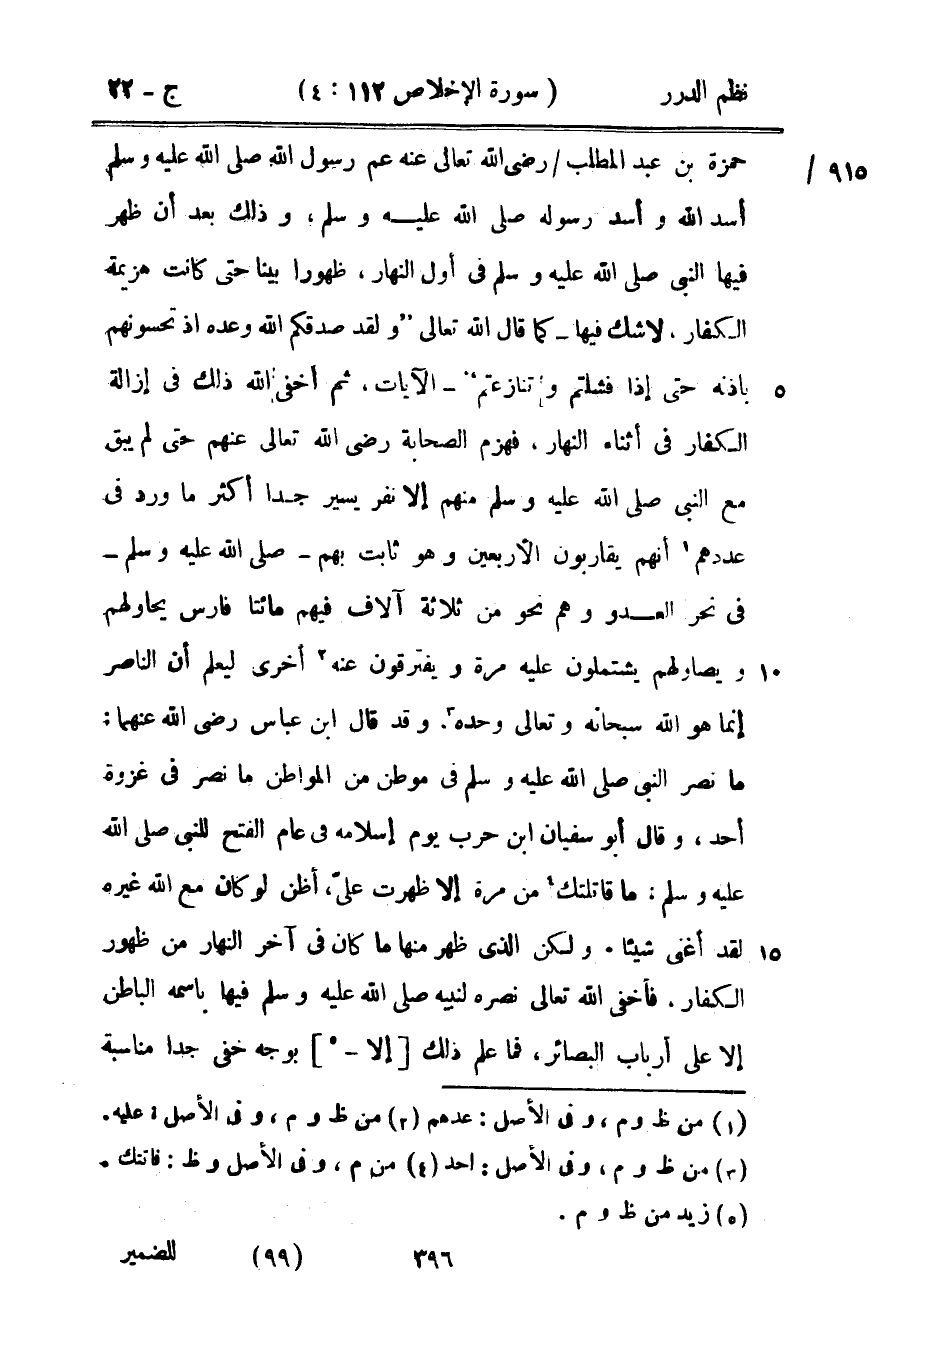 نظم الدرر ( سورة الإخلاص ١١٢ : ٤ ) ج - ٢٢
حمزة بن عبد المطلب / رضى الله تعالى عنه عم رسول الله صلى الله عليه و سلم / ٩١٥
أسد الله و أسد رسوله صلى الله عليه و سلم ، و ذلك بعد أن ظهر
فيها النبى صلى الله عليه و سلم فى أول النهار ، ظهورا بينا حتى كانت هزيمة
الكفار ، لاشك فيها - كما قال الله تعالى "و لقد صدقكم الله وعده اذ تحسونهم
باذنه حتى إذا فشلتم و تنازعتم" - الآيات ، ثم أخفى الله ذلك فى إزالة ٥
الكفار فى أثناء النهار ، فهزم الصحابة رضى الله تعالى عنهم حتى لم يبق
مع النبى صلى الله عليه و سلم منهم إلا نفر يسير جدا أكثر ما ورد فى
عددهم ١ أنهم يقاربون الأربعين و هو ثابت بهم - صلى الله عليه و سلم -
فى نحر العدو و هم نحو من ثلاثة آلاف فيهم مائتا فارس يحاولهم
و يصاولهم يشتملون عليه مرة و يفترقون عنه ٢ أخرى ليعلم أن الناصر ١٠
إنما هو الله سبحانه و تعالى وحده ٣. و قد قال ابن عباس رضى الله عنهما :
ما نصر النبى صلى الله عليه و سلم فى موطن من المواطن ما نصر فى غزوة
أحد ، و قال أبو سفيان ابن حرب يوم إسلامه فى عام الفتح للنبى صلى الله
عليه و سلم : ما قاتلتك ٤ من مرة إلا ظهرت علىّ، أظن لو كان مع الله غيره
لقد أغنى شيئا . و لكن الذى ظهر منها ما كان فى آخر النهار من ظهور ١٥
الكفار . فأخفى الله تعالى نصره لنبيه صلى الله عليه و سلم فيها باسمه الباطن
إلا على أرباب البصائر ، فما علم ذلك [ إلا - ٥ ] بوجه خفى جدا مناسبة
(١) من ظ و م ، و فى الأصل : عدهم (٢) من ظ و م ، و فى الأصل : عليه.
(٣) من ظ و م ، و فى الأصل : احد (٤) من م ، و فى الأصل و ظ : فاتتك .
(٥) زيد من ظ و م .
٣٩٦ (٩٩) للضمير